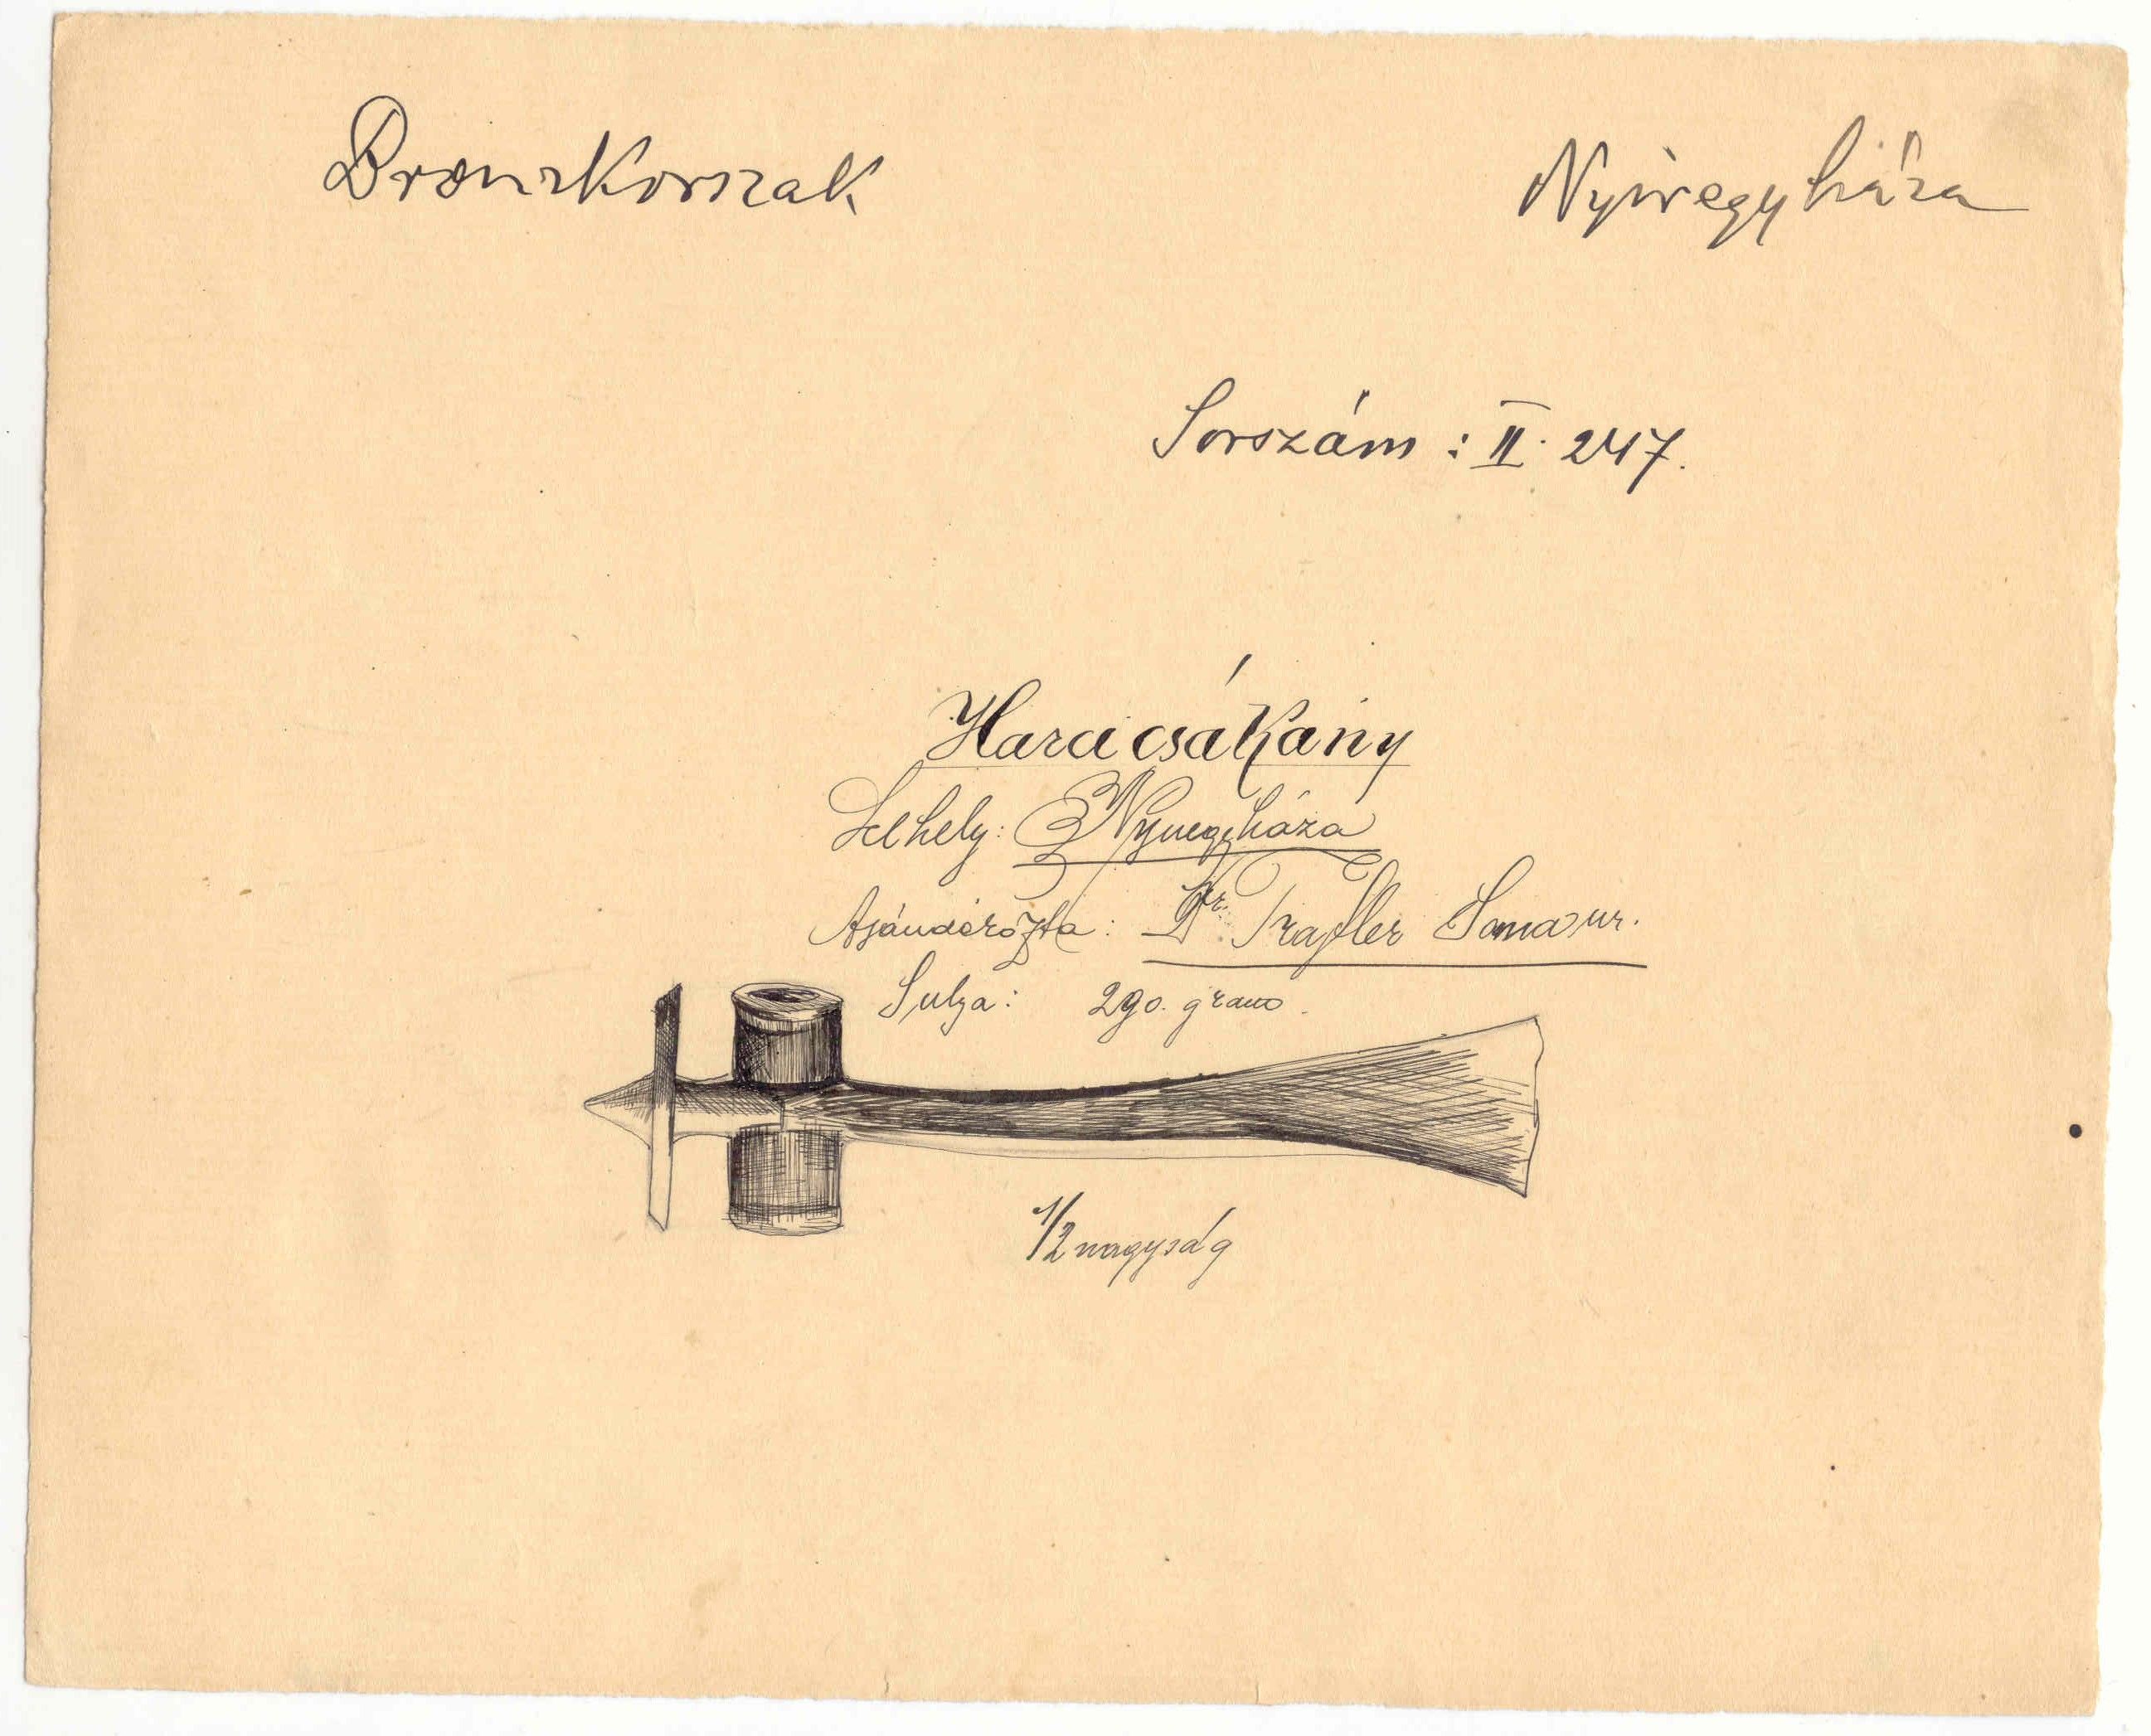 Bronzkorszak
Nyíregyháza
Sorszám: II. 247.
Harci csákány
Lelhely: Nyiregyháza
Ajándékozta: Dr. Trajtler Soma ur.
Sulya: 290. gram.
1/2 nagyság